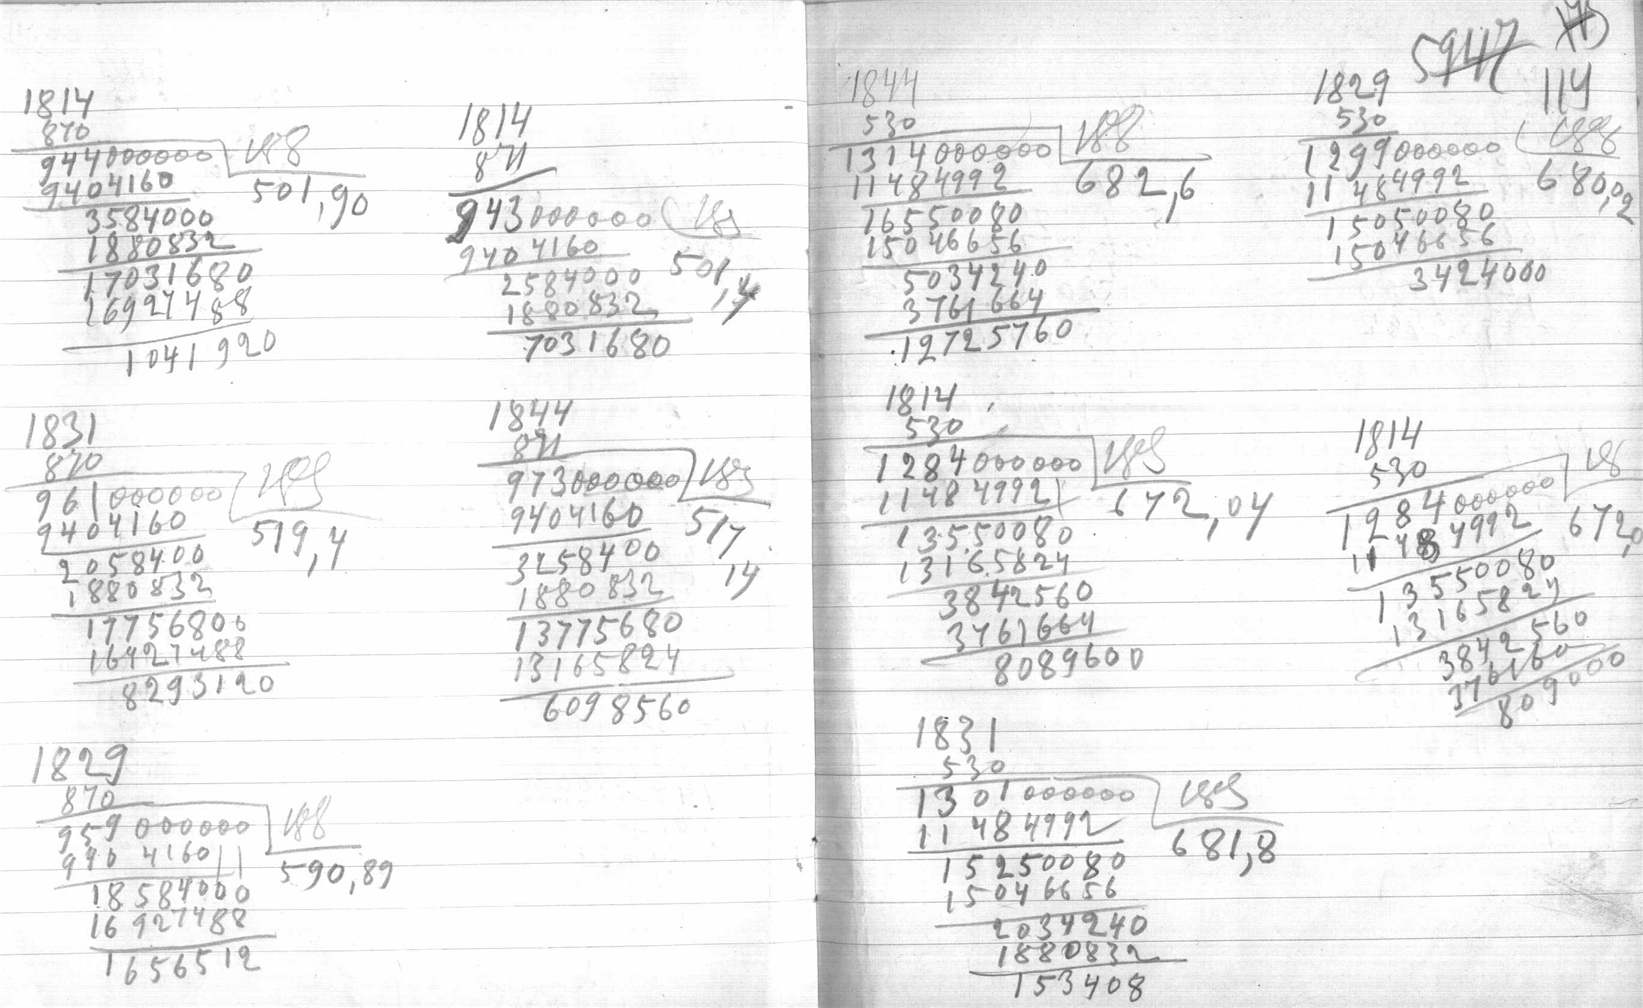 1814
870
944000000 188
9404160 501,90
3584000
1880832
17031680
16927488
1041920
1814
871
943000000 188
9404160 501,4
2584000
1880832
7031680
1831
870
961000000 188
9404160 519,4
2058400
1880832
17756800
16927488
8293120
1844
871
973000000 188
9404160 517
3258400 14
1880832
13775680
13165824
6098560
1829
870
959000000 188
9404160 590,89
18584000
16927488
1656512
5947
119
1844
530
1314000000 188
11484992 682,6
16550080
15046656
5034240
3761664
12725760
1829
530
1299000000 188
11484992 680,02
15050080
15046656
3424000
1814
530
1284000000 188
11484992 672,04
13550080
13165824
3842560
3761664
8089600
1814
530
1284000000 18
11484992 672,0
13550080
13165824
3842560
376160
809000
1831
530
1301000000 188
11484992 681,8
15250080
15046656
2034240
1880832
153408